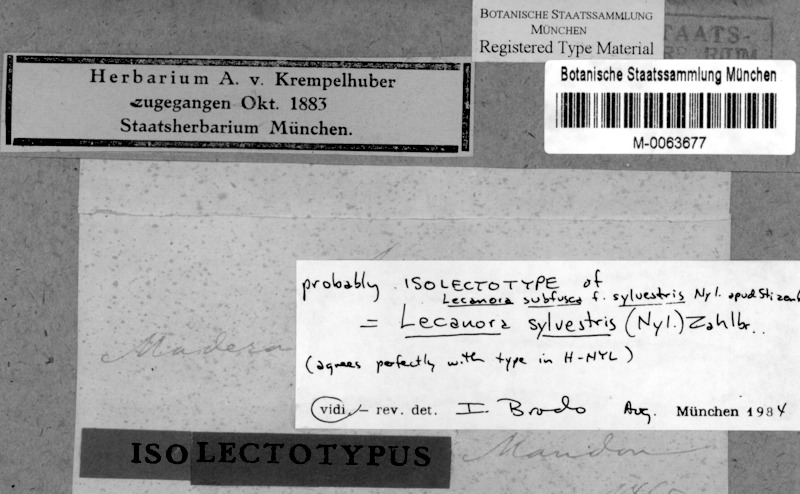 BOTANISCHE STAATSSAMMLUNG
MÜNCHEN
Registered Type Material
STAATS-
Herbarium A. v. Krempelhuber
zugegangen Okt. 1883
Staatsherbarium München.
Botanische Staatssammlung München
M-0063677
probably ISOLECTOTYPE of
Lecanora subfusca f. sylvestris Nyl. apud Stizenb
= Lecanora sylvestris (Nyl.) Zahlbr.
(agrees perfectly with type in H-NYL)
vidi, – rev. det. I. Brodo Aug. München 1984
Madera
ISOLECTOTYPUS
Mandon